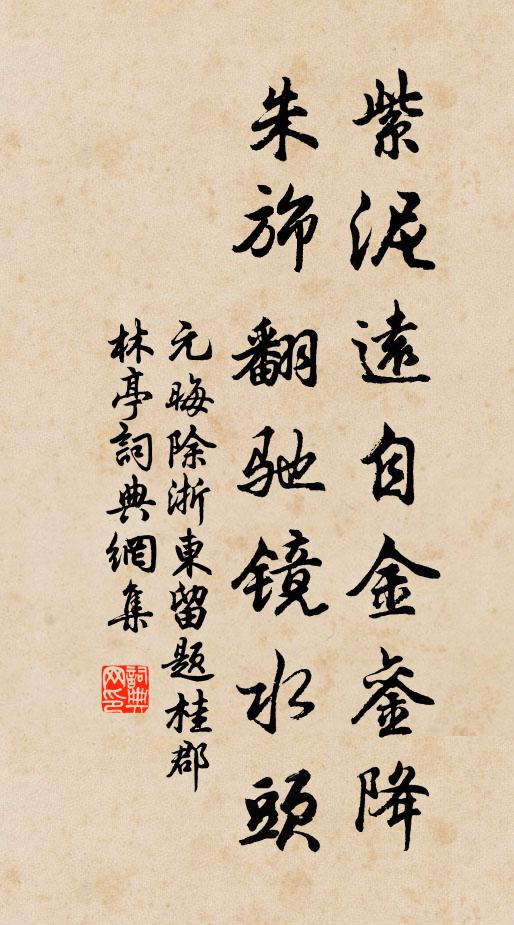 紫泥遠自金銮降
朱斾翻驰镜水頭
元晦除浙東留題桂郡
林亭詞典網集
詞典
网印